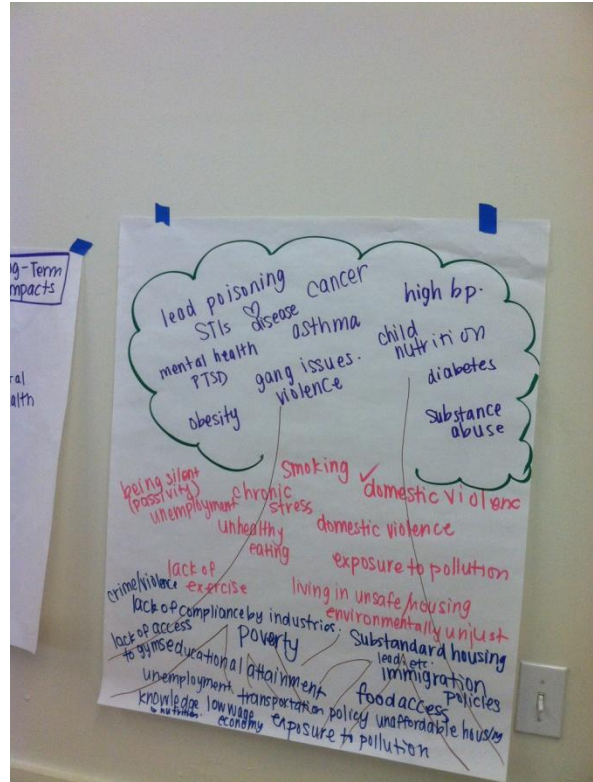 g-Term
mpacts
al
alth
lead poisoning
cancer
high bp.
STIs
♡ disease
asthma
child
nutrition
mental health
PTSD
gang issues.
violence
diabetes
obesity
substance
abuse
smoking
✓
being silent
(passivity)
chronic
stress
domestic violenc
unemployment
unhealthy
eating
domestic violence
exposure to pollution
lack of
exercise
living in unsafe/housing
environmentally unjust
crime/violence
lack of compliance by industries.
poverty
substandard housing
lead, etc.
lack of access
to gyms
educational attainment
immigration
policies
unemployment
food access
transportation policy
unaffordable housing
knowledge
nutrition.
low wage
economy
exposure to pollution